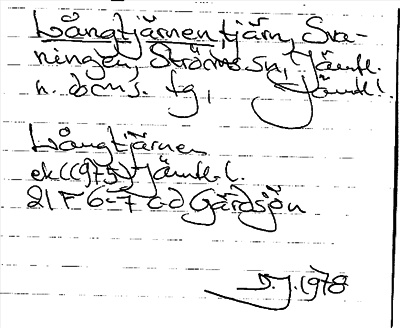 Långtjärnen, tjärn, Sva-
ningen, Ströms sn, Jämtl.
n. doms. tg, Jämtl l.
Långtjärnen
ek (1975) Jämtl. l.
21 F 6-7 c-d Gärdsjön
D.J. 1978